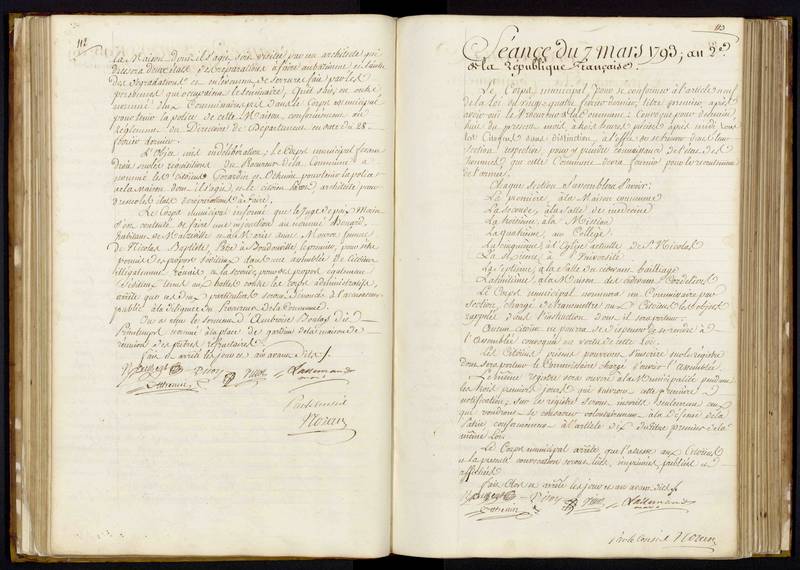 112
la Maison dont il s'agit soit visitée par un architecte qui
dressera
des dégradations et enlèvemens de serrures fait par les
personnes qui occupaient le séminaire, Qu'il soit en outre
nommé deux Commissaires pris dans le Corps municipal
pour tenir la police de cette Maison, conformément au
Règlement du Directoire de Département en date du 28
février dernier.
L'Objet mis en délibération; le Corps municipal faisant
droit sur les réquisitions du Procureur de la Commune a
nommé les Citoyens et pour tenir la police
de la Maison dont il s'agit, et le citoyen architecte pour
dresser l'état des réparations à faire.
Le Corps municipal informé que le Juge de paix
d'en
habitant de et à Marie Anne femme
de Nicolas Baptiste, à Boudonville, le premier, pour être
prévenu de propos séditieux dans une assemblée de Citoyens
illégalement réunis, et la seconde, pour des propos également
séditieux tenus au contre les corps administratifs,
arrête que ces deux particuliers seront dénoncés à l'accusateur
public à la diligence du Procureur de la Commune.
On a reçu le serment d'Ambroise dit
Printemps nommé à la place de gardien de la maison de
réunion des prêtres réfractaires.
Fait et arrêté les jour et an avant dits ./.
Lallemand
maire
Par le Conseil
Nozan
113
Séance du 7 mars 1793, an 2e.
de la République Française.
Le Corps municipal pour se conformer à l'article neuf
de la loi du vingt quatre février dernier, titre premier, après
avoir ouï le Procureur de la Commune: Convoque pour demain,
huit du présent mois, à trois heures précises après midi tous
les Citoyens sans distinction à l'effet de se réunir dans leur
section respective, pour y prendre connaissance de l'état des
hommes que cette Commune devra fournir pour le recrutement
de l'armée.
Chaque section s'assemblera savoir:
La première à la Maison commune
La seconde, à la Salle de médecine
La troisième à la Mission
La quatrième, au Collège.
La cinquième à l'Église actuelle de St. Nicolas
La Sixième à l'Université
La Septième, à la Salle du ci-devant bailliage
La huitième à la Maison des ci-devant Cordeliers
Le Corps municipal nommera un Commissaire par
section, chargé de transmettre aux Citoyens les objets
rappelés dans l'instruction dont il sera porteur.
Aucun citoyen ne pourra se dispenser de se rendre à
l'Assemblée convoquée en vertu de cette loi.
Les Citoyens présens pourront s'inscrire sur le registre
dont sera porteur le Commissaire chargé d'ouvrir l'assemblée.
Le même registre sera ouvert à la Municipalité pendant
les trois premiers jours qui suivront cette première
notification; sur le registre seront inscrits seulement ceux
qui voudront se consacrer volontairement à la Défense de la
Patrie, conformément à l'article dix du titre premier de la
même loi.
Le Corps municipal arrête, que l'adresse aux Citoyens
et la présente convocation seront lues, imprimées, publiées et
affichées.
Fait, clos et arrêté les jour et an avant dits ./.
Lallemand
maire
Par le Conseil Nozan